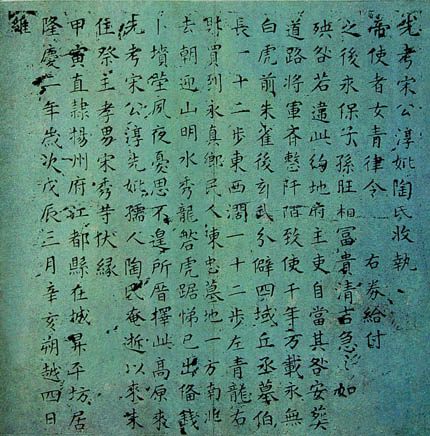 維
隆慶二年歲次戊辰三月辛亥朔越四日
甲寅直隸揚州府江都縣在城昇平坊居
住祭主孝男宋秀等伏緣
先考宋公淳先妣孺人陶氏奄逝以來未
卜墳塋夙夜憂思不遑所厝擇此高原來
去朝迎山明水秀龍蟠虎踞悌已出備錢
財買到永真鄉民人陳忠墓地一方南北
長一十二步東西濶一十二步左青龍右
白虎前朱雀後玄武分僻四域丘丞墓伯
道路將軍齊整阡陌致使千年万載永無
殃咎若違此約地府主吏自當其咎安葬
之後永保子孫旺相富貴清吉急急如
帝使者女青律令 右券給付
先考宋公淳妣陶氏收執